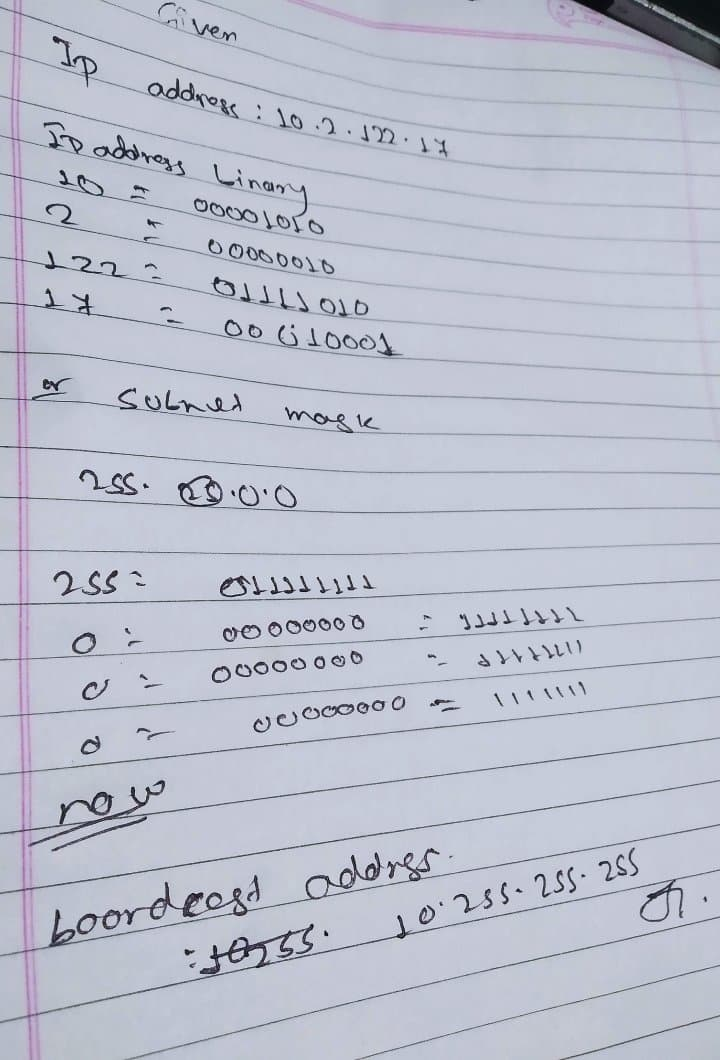 Given
Ip address : 10.2.122.17
Ip address binary
10 = 00001010
2 = 00000010
122 = 01111010
17 = 00010001
or subnet mask
255. 0.0.0
255 = 011111111
0 = 00000000 = 11111111
0 = 00000000 = 11111111
0 = 00000000 = 1111111
now
boordcast addrss.
: 10255. 10.255.255.255